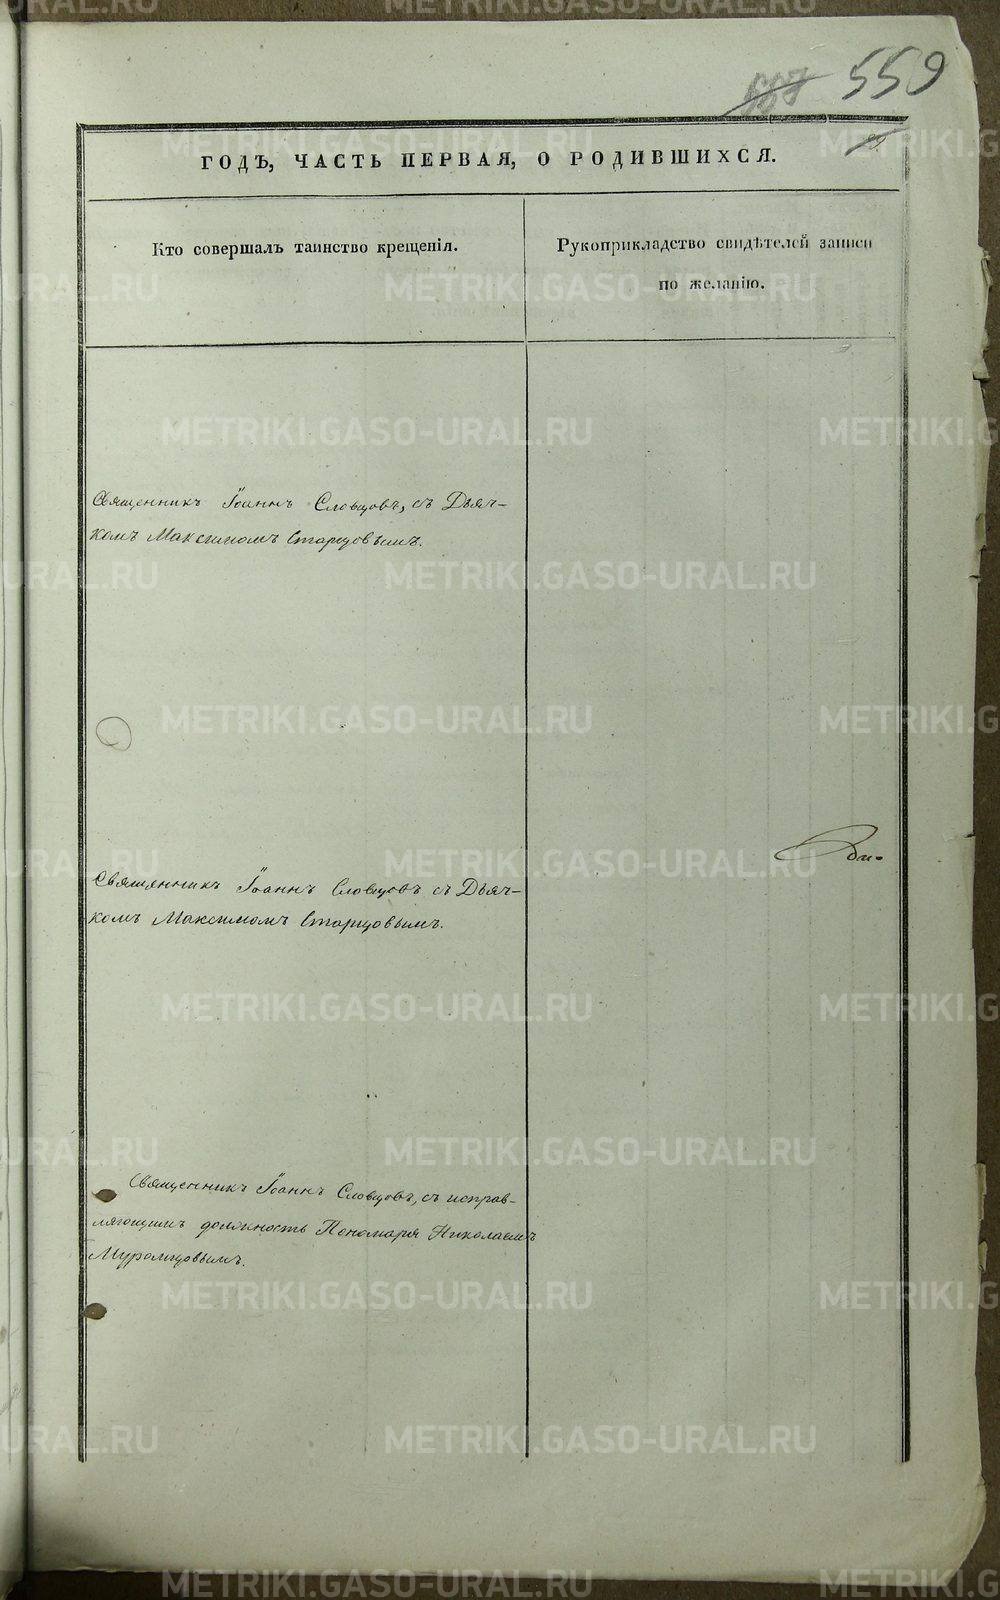 559
ГОДЪ, ЧАСТЬ ПЕРВАЯ, О РОДИВШИХСЯ.
Кто совершалъ таинство крещенія.
Рукоприкладство свидѣтелей записи
по желанію.
Священникъ Іоаннъ Словцовъ, съ Дьяч-
комъ Максимомъ Старцовымъ.
Священникъ Іоаннъ Словцовъ съ Дьяч-
комъ Максимомъ Старцовымъ.
Священникъ Іоаннъ Словцовъ, съ исправ-
ляющимъ должность Пономаря Николаемъ
Муромцовымъ.
METRIKI.GASO-URAL.RU